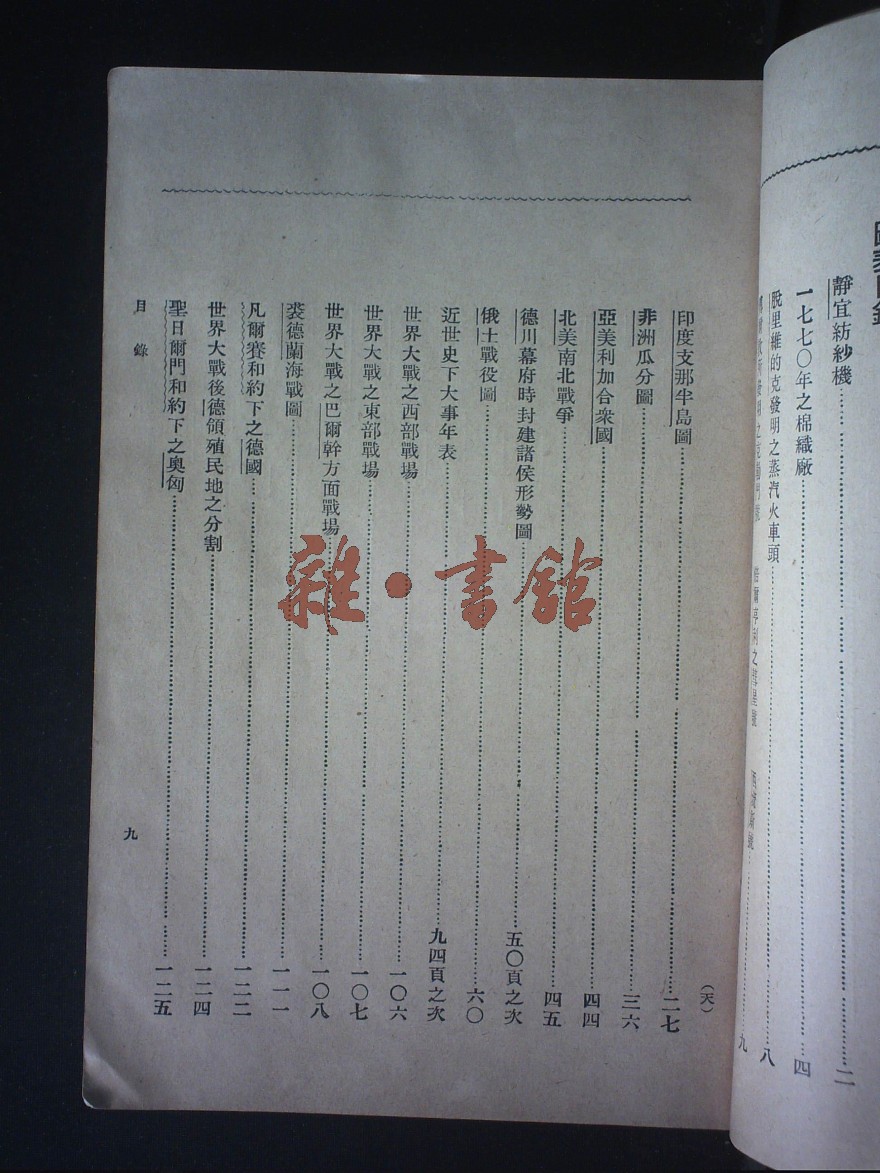 靜宜紡紗機……二
一七七〇年之棉織廠……四
脫里維的克發明之蒸汽火車頭……八
九
(天)
印度支那半島圖……二七
非洲瓜分圖……三六
亞美利加合衆國……四四
北美南北戰爭……四五
德川幕府時封建諸侯形勢圖……五〇頁之次
俄土戰役圖……六〇
近世史下大事年表……九四頁之次
世界大戰之西部戰場……一〇六
世界大戰之東部戰場……一〇七
世界大戰之巴爾幹方面戰場……一〇八
裘德蘭海戰圖……一一一
凡爾賽和約下之德國……一二二
世界大戰後德領殖民地之分割……一二四
聖日爾門和約下之奧匈……一二五
目錄
九
雜·書館